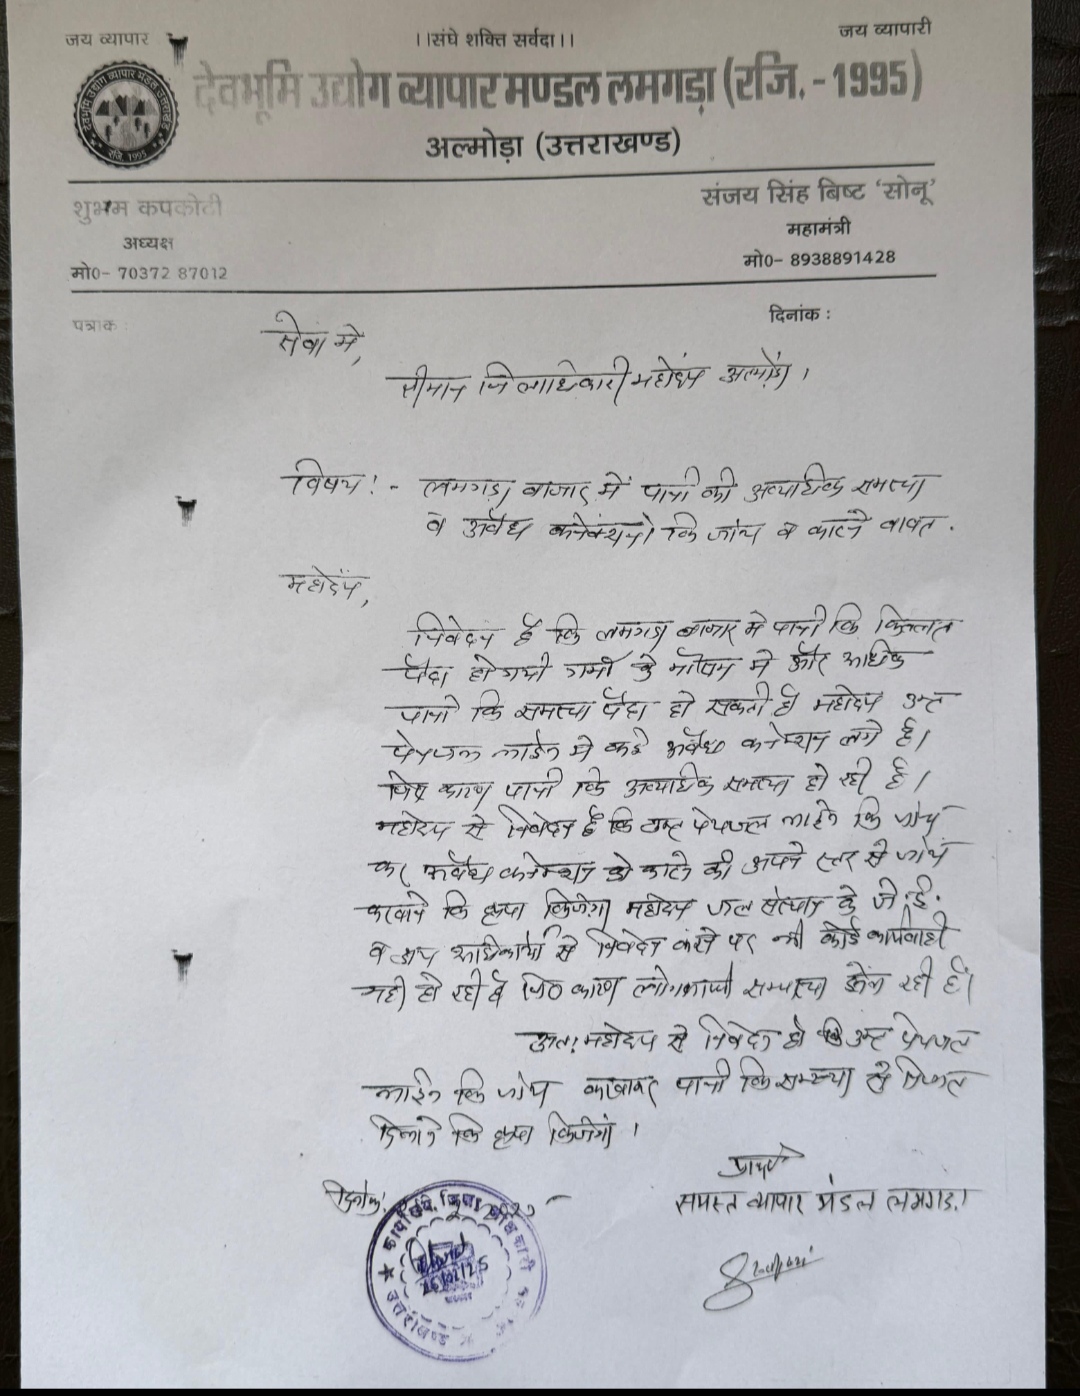 जय व्यापार
।।संघे शक्ति सर्वदा।।
जय व्यापारी
देवभूमि उद्योग व्यापार मण्डल लमगड़ा (रजि. - 1995)
अल्मोड़ा (उत्तराखण्ड)
देवभूमि उद्योग व्यापार मंडल
रजि. 1995
शुभम कपकोटी
अध्यक्ष
मो0- 70372 87012
संजय सिंह बिष्ट 'सोनू'
महामंत्री
मो0- 8938891428
पत्राक :
दिनांक :
सेवा मे,
श्रीमान जिलाधिकारी महोदय अल्मोड़ा।
विषय:- लमगड़ा बाजार में पानी की अत्याधिक समस्या
व अवैध कनेक्शनो कि जांच व काटने बावत.
महोदय,
निवेदन है कि लमगड़ा बाजार मे पानी कि किल्लत
पैदा हो गयी गर्मी के मौसम मे और अधिक
पानी कि समस्या पैदा हो सकती है महोदय उक्त
पेयजल लाईन मे कई अवैध कनेक्शन लगे है।
जिस कारण पानी कि अत्याधिक समस्या हो रही है।
महोदय से निवेदन है कि उक्त पेयजल लाईन कि जांच
कर अवैध कनेक्शन को काटने की अपने स्तर से जांच
करवाने कि कृपा किजेगा महोदय जल संस्थान के जे.ई.
व अन्य अधिकारियों से निवेदन करने पर भी कोई कार्यवाही
नही हो रही है जिस कारण लोग पानी समस्या झेल रही है।
अतः महोदय से निवेदन है कि उक्त पेयजल
लाईन कि जांच करवाकर पानी कि समस्या से निजात
दिलाने कि कृपा किजेगा।
दिनांक:
प्रार्थी
समस्त व्यापार मंडल लमगड़ा
कार्यालय जिला अधिकारी
उत्तराखण्ड